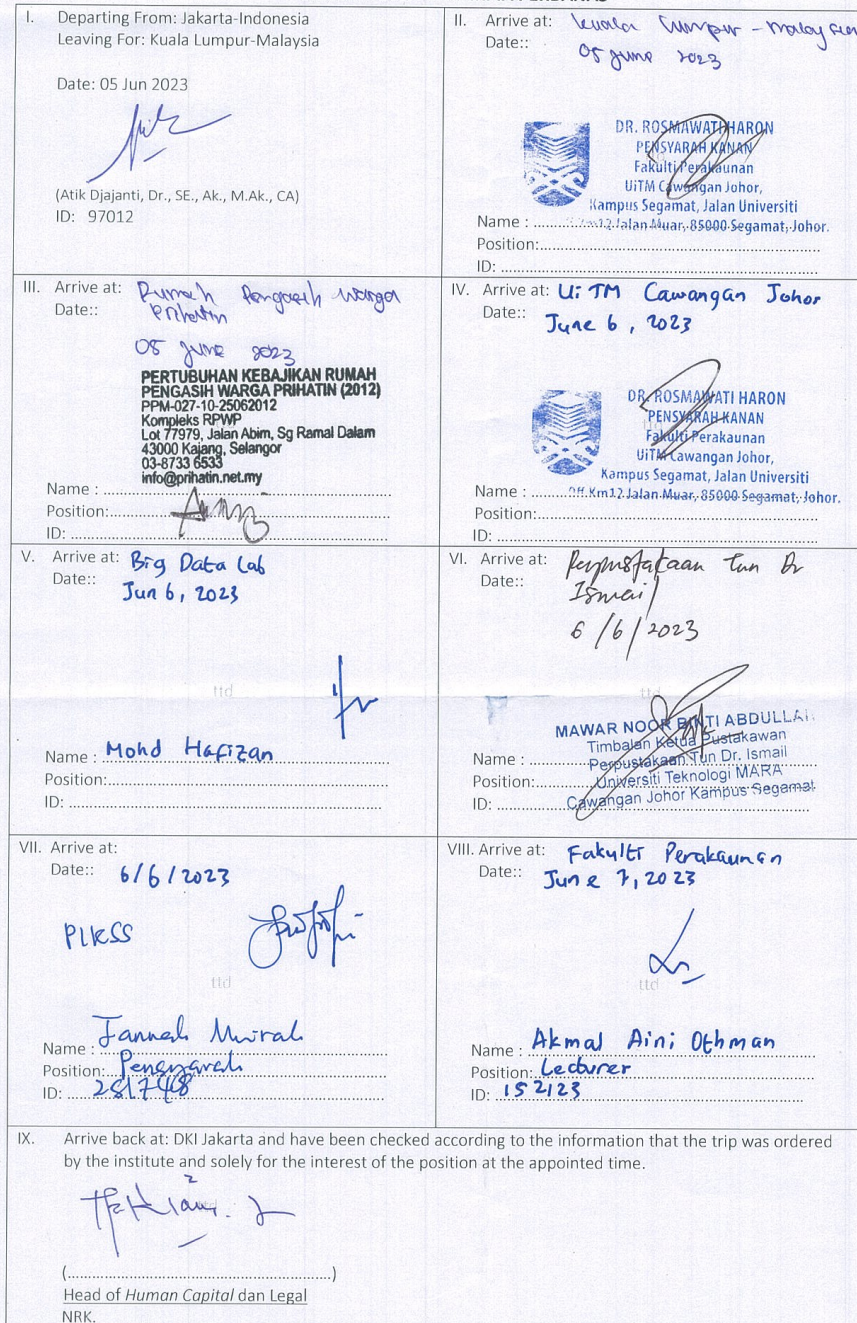 I. Departing From: Jakarta-Indonesia
Leaving For: Kuala Lumpur-Malaysia
Date: 05 Jun 2023
(Atik Djajanti, Dr., SE., Ak., M.Ak., CA)
ID: 97012
II. Arrive at: Kuala Lumpur - Malaysia
Date:: 05 June 2023
DR. ROSMAWATI HARON
PENSYARAH KANAN
Fakulti Perakaunan
UiTM Cawangan Johor,
Kampus Segamat, Jalan Universiti
Name : Km12 Jalan Muar, 85000 Segamat, Johor.
Position:
ID:
III. Arrive at: Rumah Pengasih Warga
Date:: Prihatin
05 June 2023
PERTUBUHAN KEBAJIKAN RUMAH
PENGASIH WARGA PRIHATIN (2012)
PPM-027-10-25062012
Kompleks RPWP
Lot 77979, Jalan Abim, Sg Ramal Dalam
43000 Kajang, Selangor
03-8733 6533
info@prihatin.net.my
Name :
Position:
ID:
IV. Arrive at: UiTM Cawangan Johor
Date:: June 6, 2023
DR. ROSMAWATI HARON
PENSYARAH KANAN
ttd
Fakulti Perakaunan
UiTM Cawangan Johor,
Kampus Segamat, Jalan Universiti
Name : Off Km12 Jalan Muar, 85000 Segamat, Johor.
Position:
ID:
V. Arrive at: Big Data Lab
Date:: Jun 6, 2023
ttd
Name : Mohd Hafizan
Position:
ID:
VI. Arrive at: Perpustakaan Tun Dr
Date:: Ismail
6/6/2023
ttd
MAWAR NOOR BINTI ABDULLAH
Timbalan Ketua Pustakawan
Name : Perpustakaan Tun Dr. Ismail
Position: Universiti Teknologi MARA
ID: Cawangan Johor Kampus Segamat
VII. Arrive at:
Date:: 6/6/2023
PLKSS
ttd
Name : Jannah Munirah
Position: Pensyarah
ID:
VIII. Arrive at: Fakulti Perakaunan
Date:: June 7, 2023
ttd
Name : Akmal Aini Othman
Position: Lecturer
ID: 152123
IX. Arrive back at: DKI Jakarta and have been checked according to the information that the trip was ordered
by the institute and solely for the interest of the position at the appointed time.
ttd
(..................................................)
Head of Human Capital dan Legal
NRK.